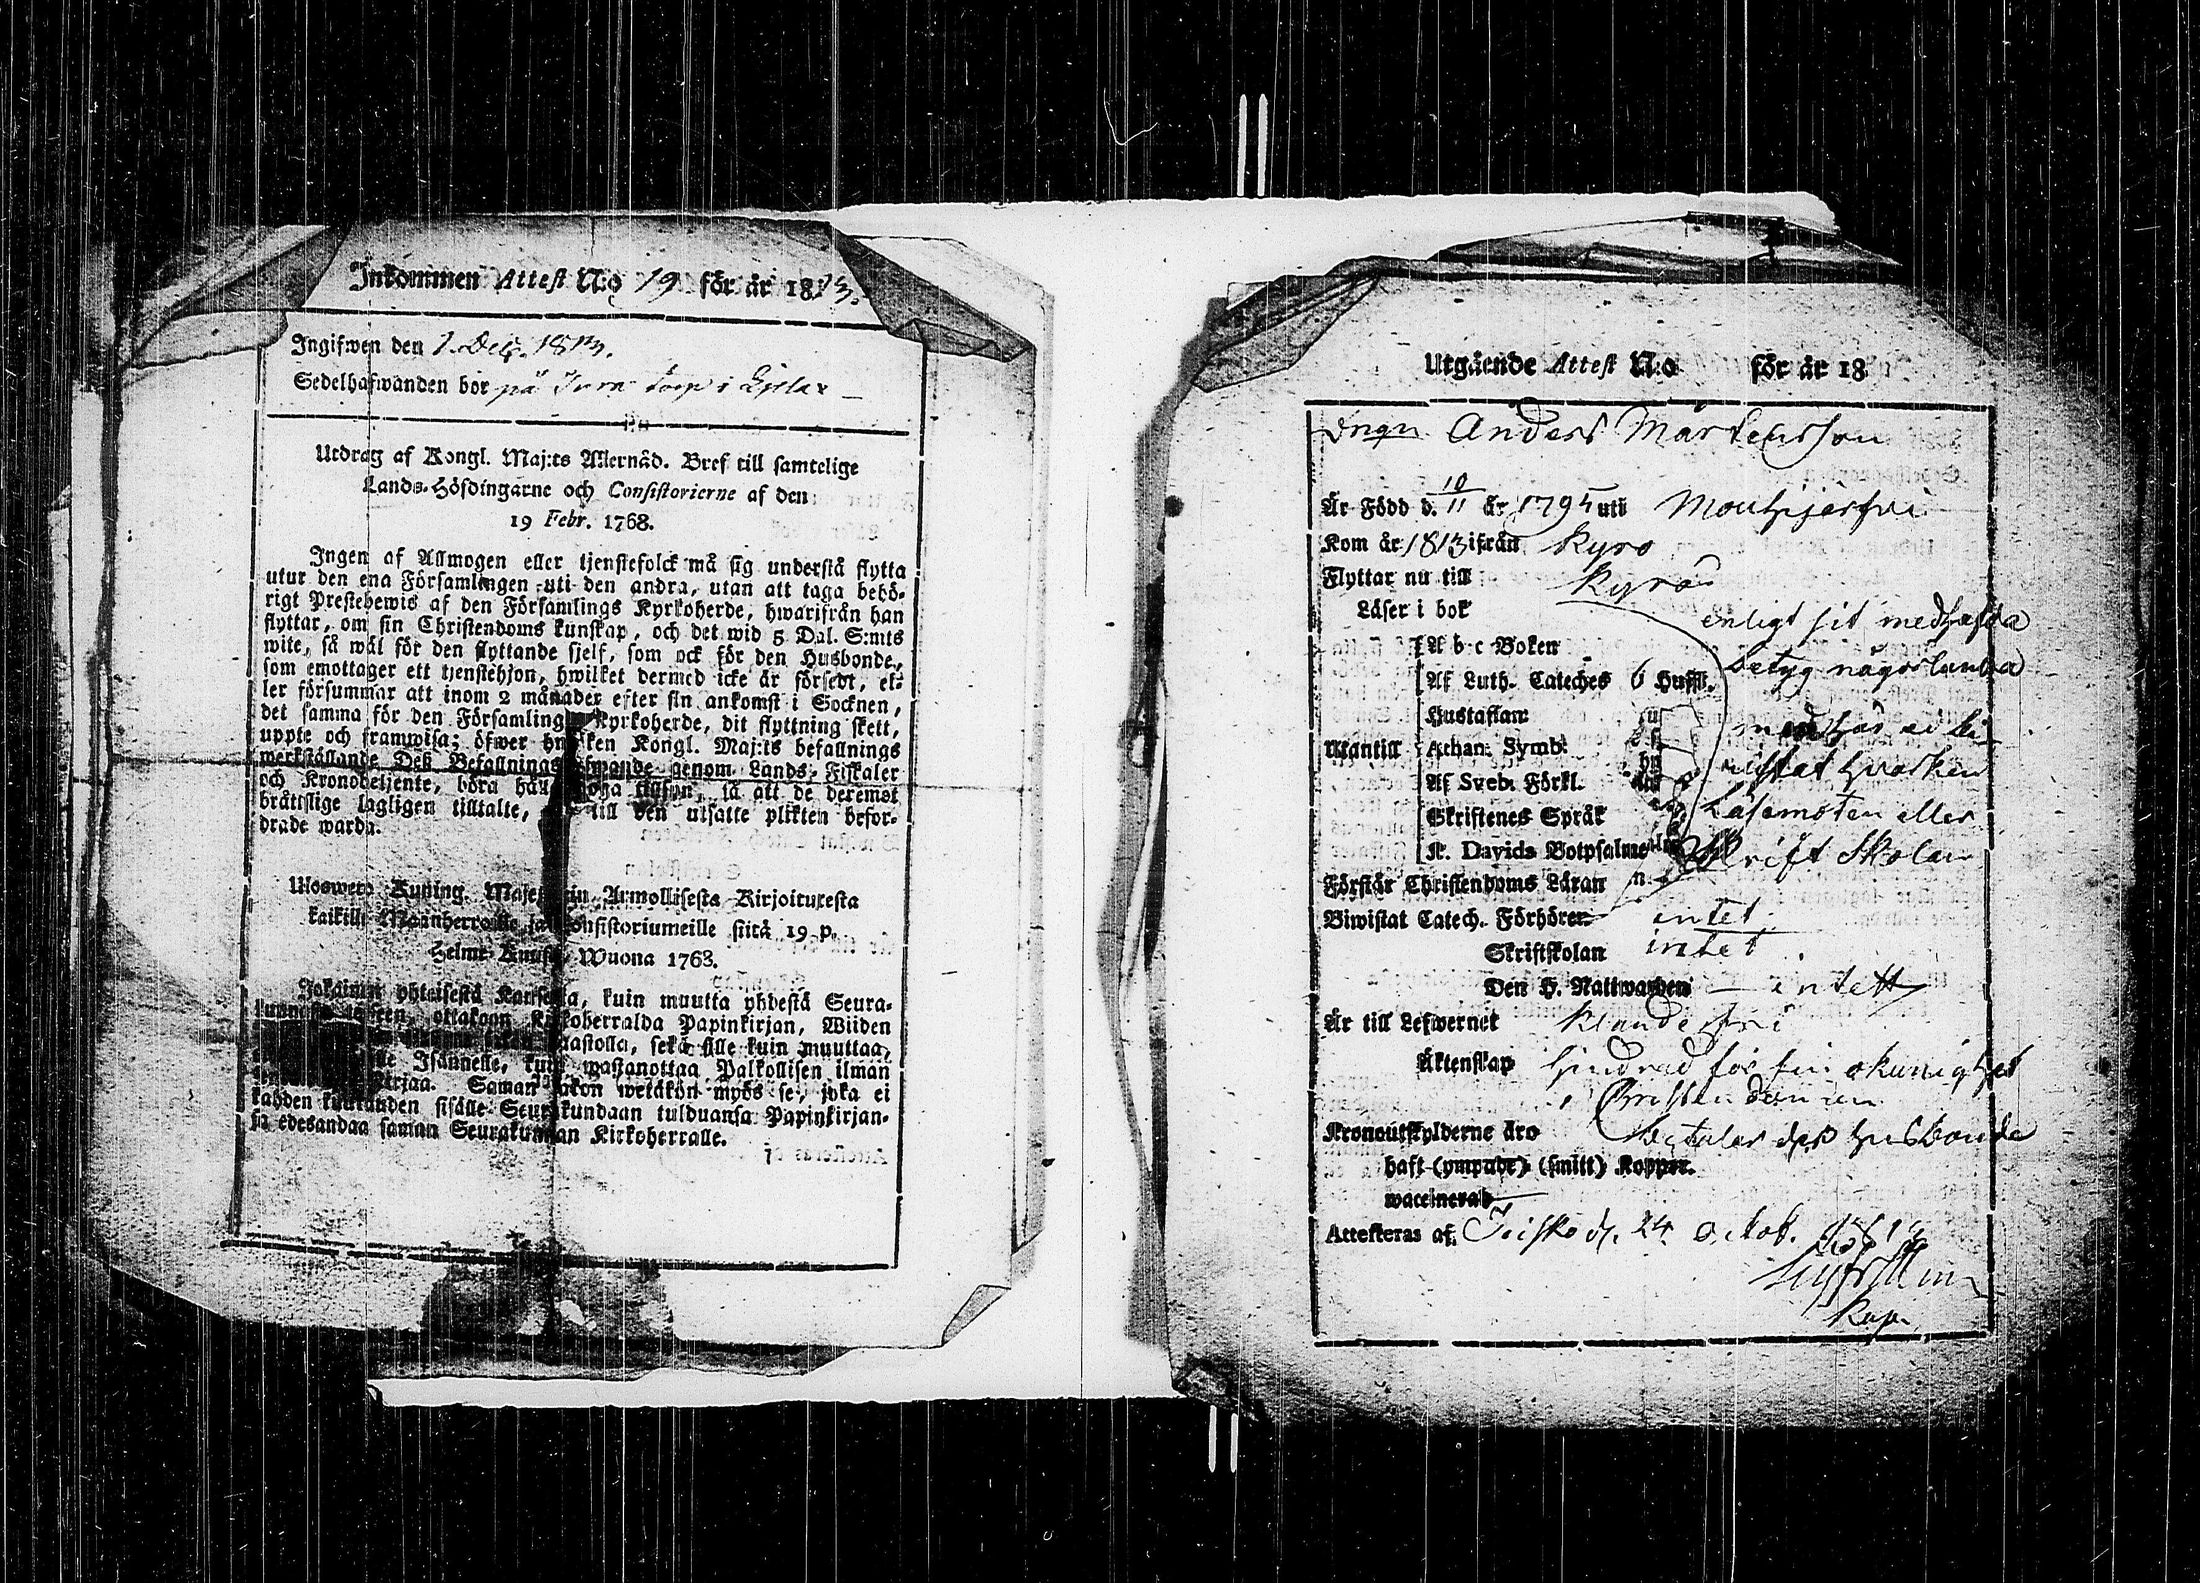 Inkommen Attest N:o 19 för år 1813.
Ingifwen den 1. Dec. 1813.
Sedelhafwanden bor på torp i
Utdrag af Kongl. Maj:ts Allernåd. Bref till samtelige
Lands-Höfdingarne och Consistorierne af den
19 Febr. 1768.
Ingen af Allmogen eller tjenstefolck må sig understå flytta
utur den ena Församlingen uti den andra, utan att taga behö-
rigt Prestebewis af den Församlings Kyrkoherde, hwarifrån han
flyttar, om sin Christendoms kunskap, och det wid 5 Dal. S:mts
wite, så wäl för den flyttande sjelf, som ock för den Husbonde,
som emottager ett tjenstehjon, hwilket dermed icke är försedt, el-
ler försummar att inom 2 månader efter sin ankomst i Socknen,
det samma för den Församling Kyrkoherde, dit flyttning skett,
uppte och framwisa; öfwer Kongl. Maj:ts befallnings
werkställande Deß Befallnings genom Lands-Fiskaler
och Kronobetjente, böra tillsyn, så att de deremot
bråttslige lagligen tilltalte, till den utsatte plikten befor-
drade warda.
Uloswetö Kuning. Armollisesta Kirjoituxesta
kaikille Maanherroille siitä 19 p.
Helme- Wuona 1768.
yhteisestä kuin muutta yhdestä Seura-
ottakoon Papinkirjan, Wiiden
sekä sille kuin muuttaa,
Isännelle, wastanottaa Palkollisen ilman
Saman wetäkön myös se, joka ei
kahden kuukauden sisälle Seurakundaan tulduansa Papinkirjan-
sa edesandaa saman Seurakunnan Kirkoherralle.
Utgående Attest N:o för år 18
Drgn Anders Mårtensson
Är Född d. 10/11 år 1795 uti Mouhijerfvi
Kom år 1813 ifrån Kyro
Flyttar nu till Kyro
Läser i bok
enligt sit medhafda
A b c Boken
betyg någorlunda
Af Luth. Cateches 6 Hufst.
Hustaflan
men har ej bi-
Utantill Athan. Symb.
vistat hvarken
Af Sveb. Förkl.
Läsemöten eller
Skriftenes Språk
Skrift Skolan
K. Davids Botpsalmer
Förstår Christendoms Läran
Biwistat Catech. Förhörer intet
Skriftskolan intet
Den H. Nattwarden intett
Är till Lefwernet
Äktenskap hindrad för sin okunighet
i Christendomen
Kronoutskylderne äro betalar des husbonde
haft (ympade) (smitt) Koppor.
waccinerad
Attesteras af. d. 24 Octob. 1813
Kap.